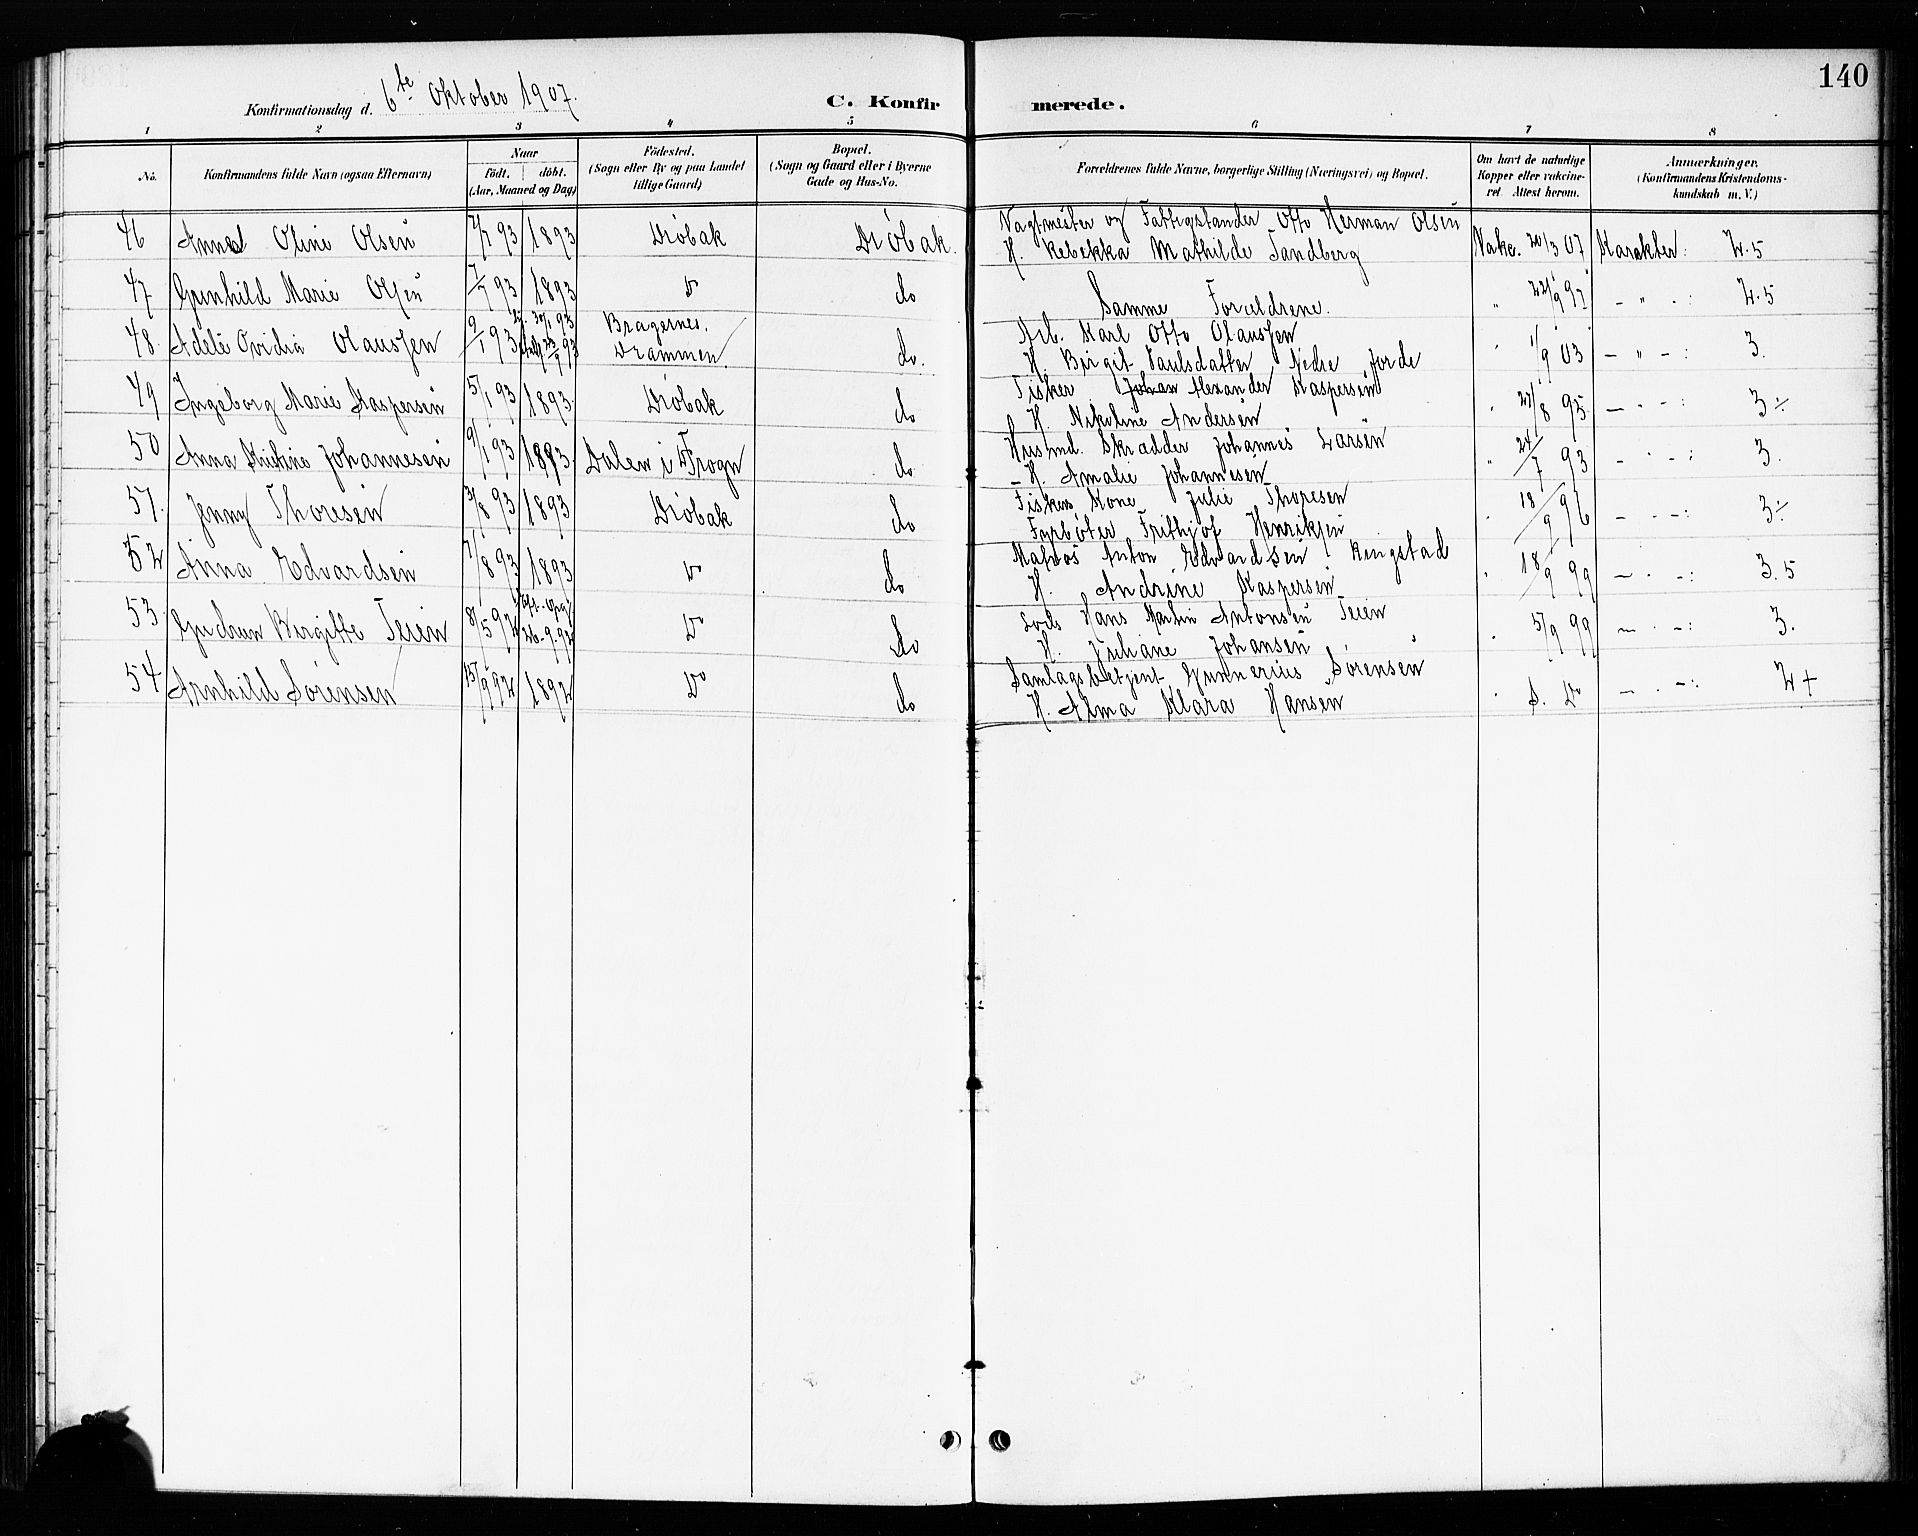 140
Konfirmationsdag d. 6te Oktober 1907.
C. Konfirmerede.
1 2 3 4 5 6 7 8
No.
Konfirmandens fulde Navn (ogsaa Efternavn)
Naar
födt. döbt.
(Aar, Maaned og Dag)
Födested.
(Sogn eller By og paa Landet
tillige Gaard)
Bopæl.
(Sogn og Gaard eller i Byerne
Gade og Hus-No.
Forældrenes fulde Navne, borgerlige Stilling (Næringsvei) og Bopæl.
Om havt de naturlige
Kopper eller vakcine-
ret Attest herom.
Anmærkninger.
(Konfirmandens Kristendoms-
kundskab m. V.)
46 Anna Oline Olsen 7/7 93 1893 Dröbak Dröbak. Vagtmester og Fattigstander Otto Herman Olsen
H. Rebekka Mathilde Sandberg Vakc. 20/3 07 Karakter: 2.5
47 Gunhild Marie Olsen 7/7 93 1893 Do do Samme Forældrene. " 22/9 97 - " - : 2.5
48 Adele Ovidia Olaussen 9/1 93 Bragernes.
Drammen. do. Arb. Karl Otto Olaussen
H. Birgit Paulsdatter Nedre Jorde " 1/9 03 - " - : 3.
49 Ingeborg Marie Kaspersen 5/1 93 1893 Dröbak do Fisker Johan Alexander Kaspersen
H. Nikoline Andersen " 27/8 95 - " - : 3÷
50 Anna Kristine Johannesen 9/1 93 1893 Dalen i Frogn do Husmd. Skrædder Johannes Larsen
- H. Amalie Johannesen " 24/7 93 - " - : 3.
51. Jenny Thoresen 3/8 93 1893 Dröbak do Fiskers Kone Julie Thoresen
Fyrböter Frithjof Henriksen " 18/9 96 - " - : 3÷
52 Anna Edvardsen 7/8 93 1893 Do do Matros Anton Edvardsen Ringstad
H. Andrine Kaspersen " 18/9 99 - " - : 3.5
53. Gudrun Birgitte Teien 8/5 92 26-9-92 Do Do Lods Hans Martin Antonsen Teien
H. Juliane Johansen " 5/9 99 - " - : 3.
54 Arnhild Sörensen 15/9 92 1892 Do do Samlagsbetjent Gunnerius Sörensen
H. Alma Klara Hansen " S. D. - " - : 2+